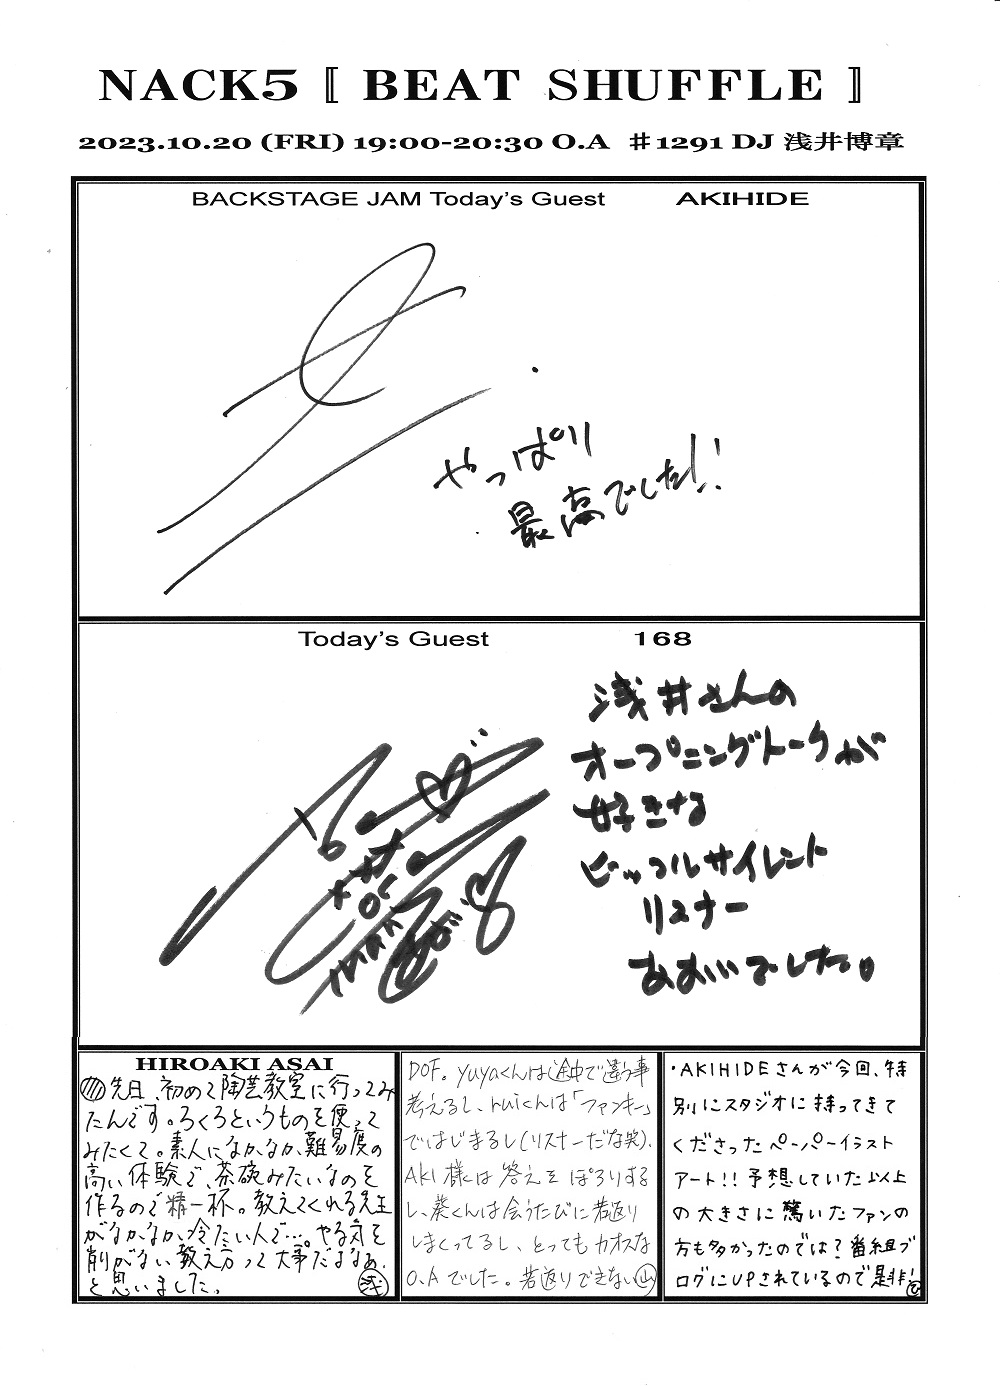 NACK5 〚 BEAT SHUFFLE 〛
2023.10.20 (FRI) 19:00-20:30 O.A ＃1291 DJ 浅井博章
BACKSTAGE JAM Today's Guest AKIHIDE
やっぱり
最高でした!!
Today's Guest 168
浅井さんの
オープニングトークが
好きな
ビッフルサイレント
リスナー
あおいでした。
Thank
HIROAKI ASAI
先日、初めて陶芸教室に行ってみ
たんです。ろくろというものを使って
みたくて。素人になかなか難易度の
高い体験で、茶碗みたいなのを
作るので精一杯。教えてくれる先生
がなかなか冷たい人で…。やる気を
削がない教え方って大事だよなぁ、
と思いました。 浅
DOF。yuyaくんは途中で違う事
考えるし、ruiくんは「ファンキー」
ではじまるし(リスナーだな笑)、
AKI様は答えをぽろりする
し、葵くんは会うたびに若返り
しまくってるし、とってもカオスな
O.Aでした。若返りできない 山
・AKIHIDEさんが今回、特
別にスタジオに持ってきて
くださったペーパーイラスト
アート!!予想していた以上
の大きさに驚いたファンの
方も多かったのでは?番組ブ
ログにUPされているので是非!